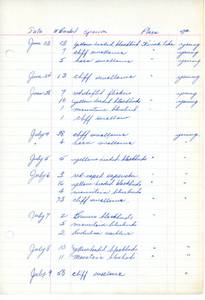 Date # Banded Species Place age
June 23 13 yellow-headed blackbird French Lake young
7 cliff swallows " young
5 barn swallows " young
June 24 13 cliff swallows " young
June 28 7 redshafted flickers " young
10 yellow-headed blackbirds "
1 mountain bluebird "
1 cliff swallow
July 4 38 cliff swallows " young
" 4 barn swallows "
July 5 yellow-headed blackbirds "
July 6 3 red-naped sapsucker "
yellow-headed blackbirds "
mountain bluebirds "
73 cliff swallows "
July 7 2 Brewers blackbirds "
5 mountain bluebirds "
2 swallow
July 8 13 Yellowheaded blackbirds "
11 Mountain bluebirds "
July 9 53 cliff swallows "